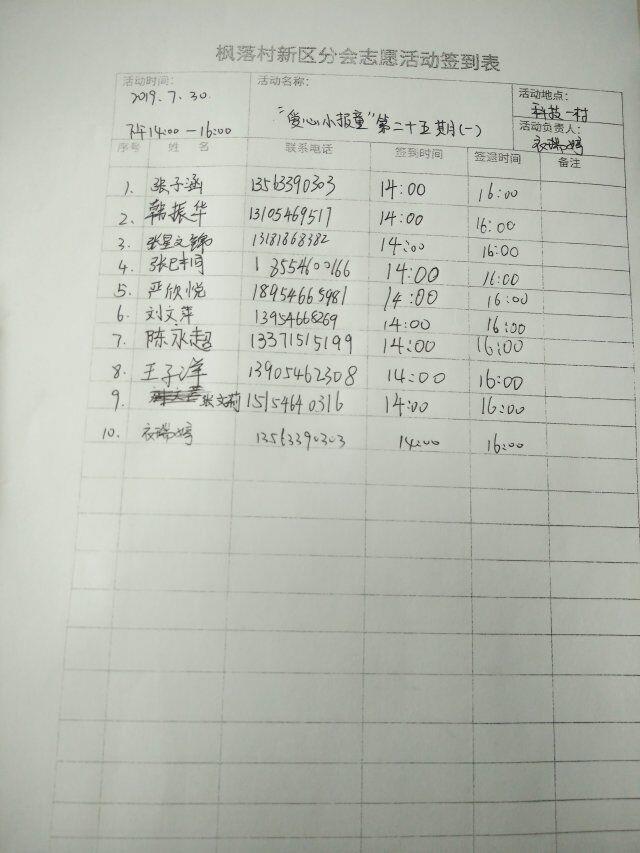 枫落村新区分会志愿活动签到表
活动时间: 活动名称: 活动地点:
2019.7.30. "爱心小报童"第二十五期(一) 科技一村
下午14:00-16:00 活动负责人: 衣瑞婷
序号 姓 名 联系电话 签到时间 签退时间 备注
1. 张子涵 13563390303 14:00 16:00
2. 韩振华 13105469517 14:00 16:00
3. 张昱文锦 13181868382 14:00 16:00
4. 13554600166 14:00 16:00
5. 严欣悦 18954665981 14:00 16:00
6. 刘文萍 13954668269 14:00 16:00
7. 陈永超 13371515199 14:00 16:00
8. 王子洋 13905462308 14:00 16:00
9. 张文莉 15154640316 14:00 16:00
10. 衣瑞婷 13563390303 14:00 16:00